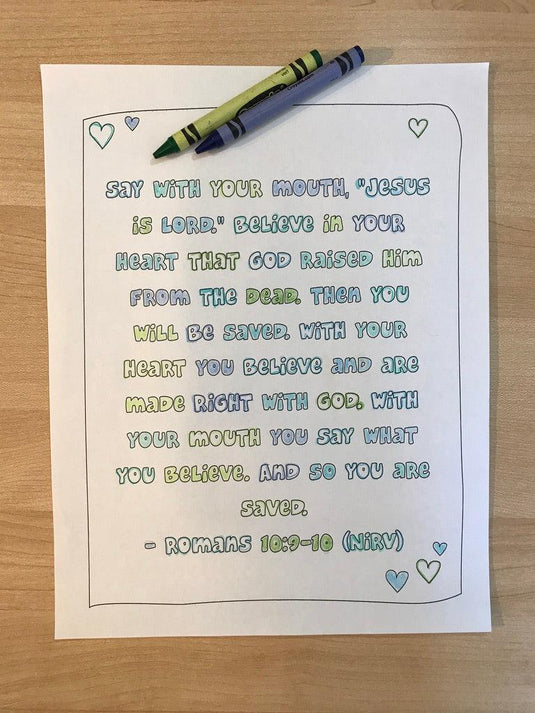 Say with your mouth, "Jesus
is Lord." Believe in your
heart that God raised him
from the dead. Then you
will be saved. With your
heart you believe and are
made right with God. With
your mouth you say what
you believe. And so you are
saved.
- Romans 10:9-10 (NIRV)